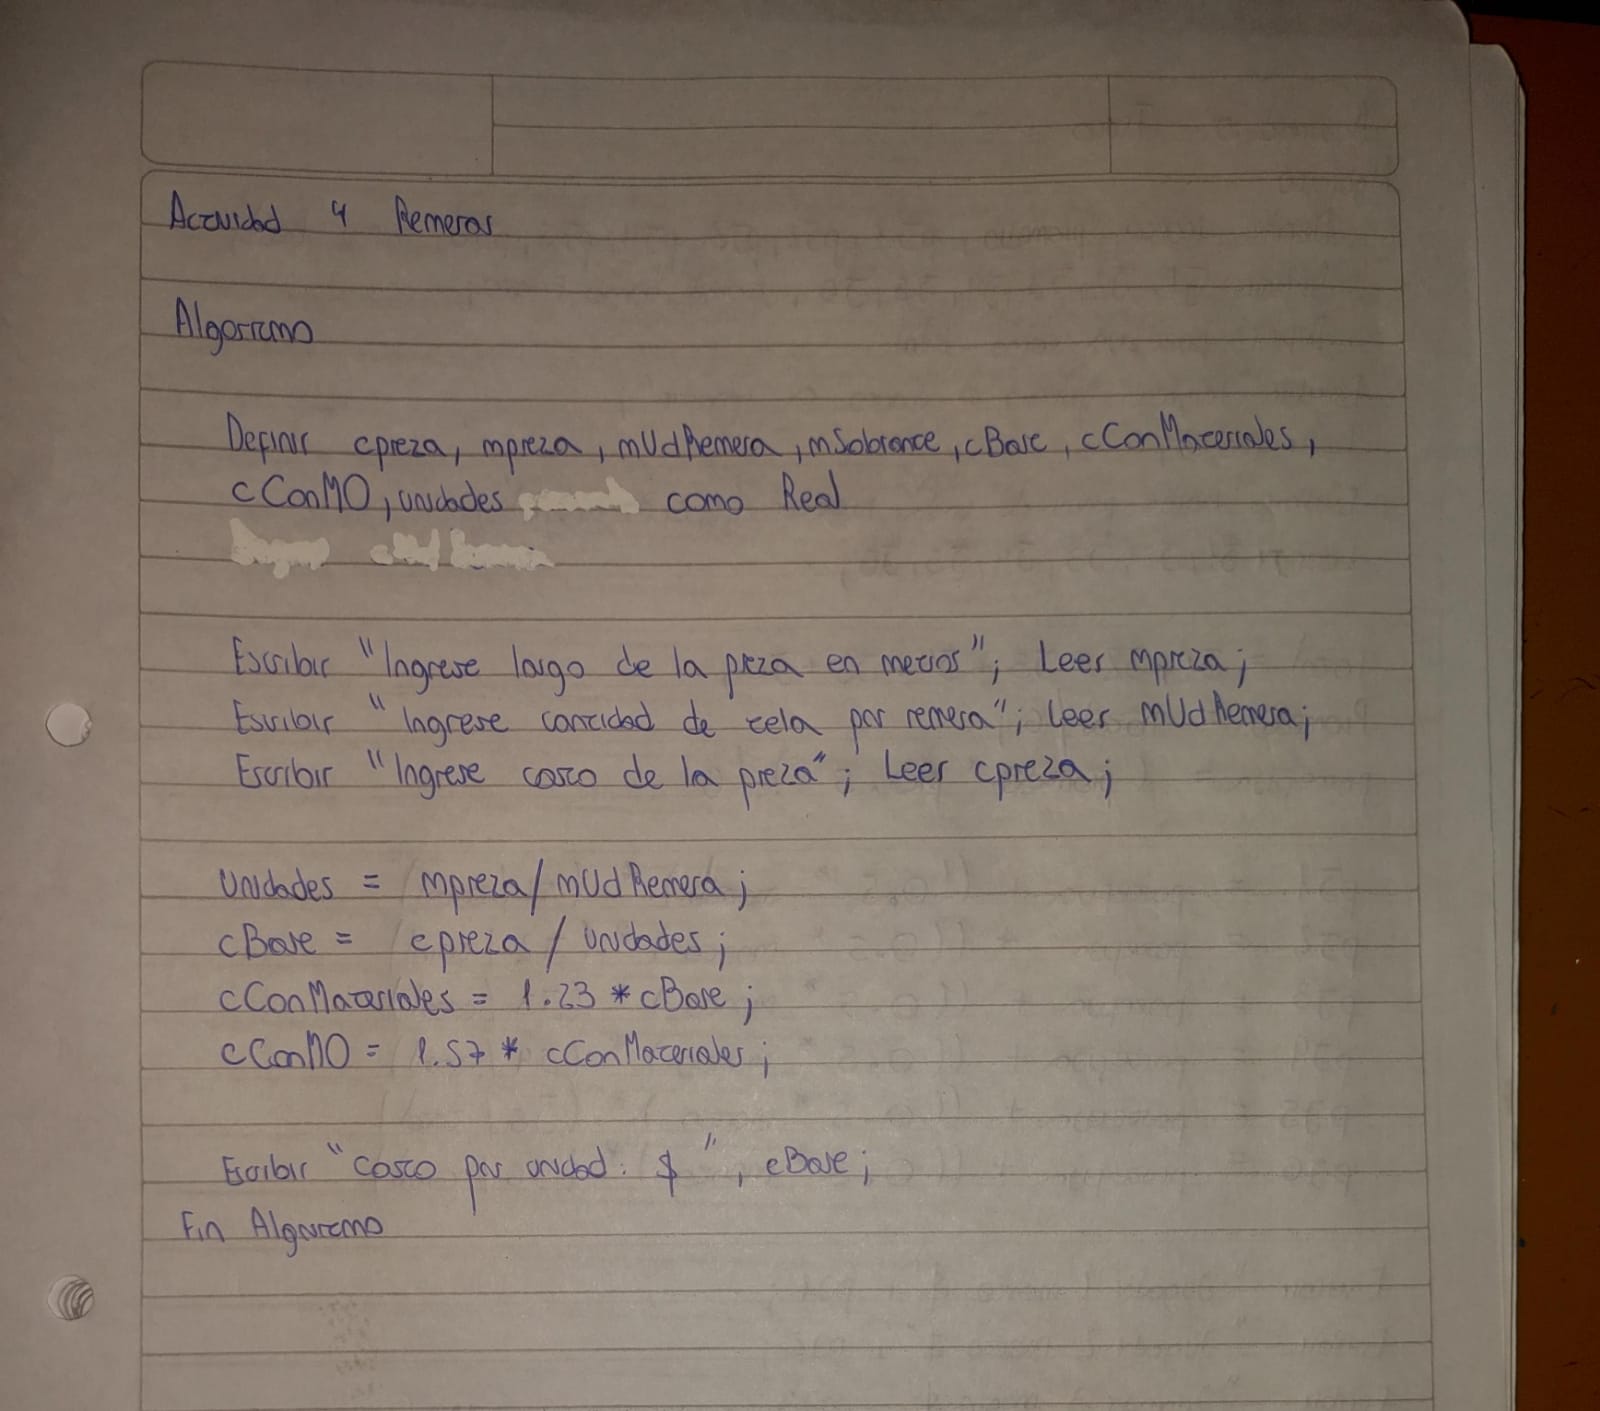 Actividad 4 Remeras
Algoritmo
Definir cpieza, mpieza, mUdRemera, mSobrante, cBase, cConMateriales,
cConMO, unidades como Real
Escribir "Ingrese largo de la pieza en metros"; Leer mpieza;
Escribir "Ingrese cantidad de tela por remera"; Leer mUdRemera;
Escribir "Ingrese costo de la pieza"; Leer cpieza;
Unidades = mpieza/mUdRemera;
cBase = cpieza / unidades;
cConMateriales = 1.23 * cBase;
cConMO = 1.57 * cConMateriales;
Escribir "costo por unidad: $", cBase;
Fin Algoritmo